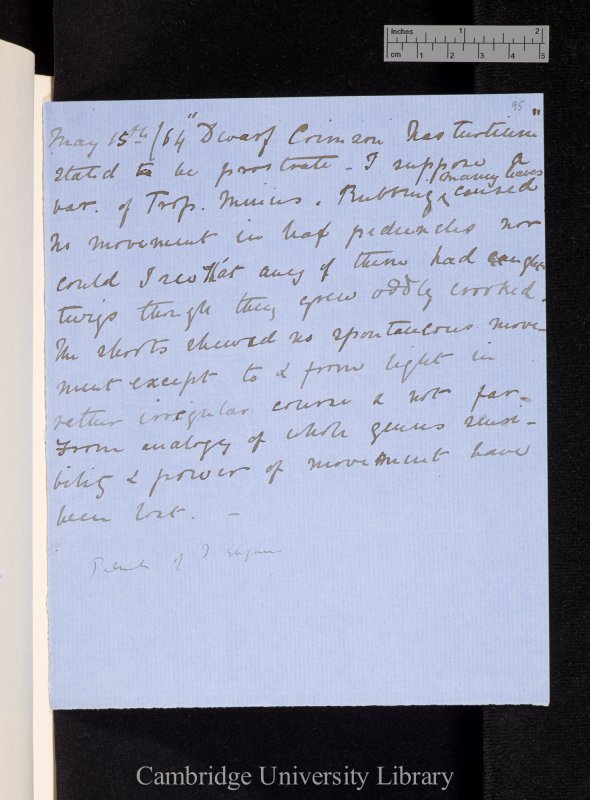 Inches 1 2
cm 1 2 3 4 5
95
May 15th/64 "Dwarf Crimson Nasturtium"
stated to be prostrate – I suppose a
var. of Trop. Minus. Rubbing many leaves caused
no movement in leaf peduncles nor
could I see that any of them had caught
twigs though they grew oddly crooked.
The shoots shewed no spontaneous move-
ment except to & from light in
rather irregular course & not far –
From analogy of whole genus sensi-
bility & power of movement have
been lost. –
of T
Cambridge University Library